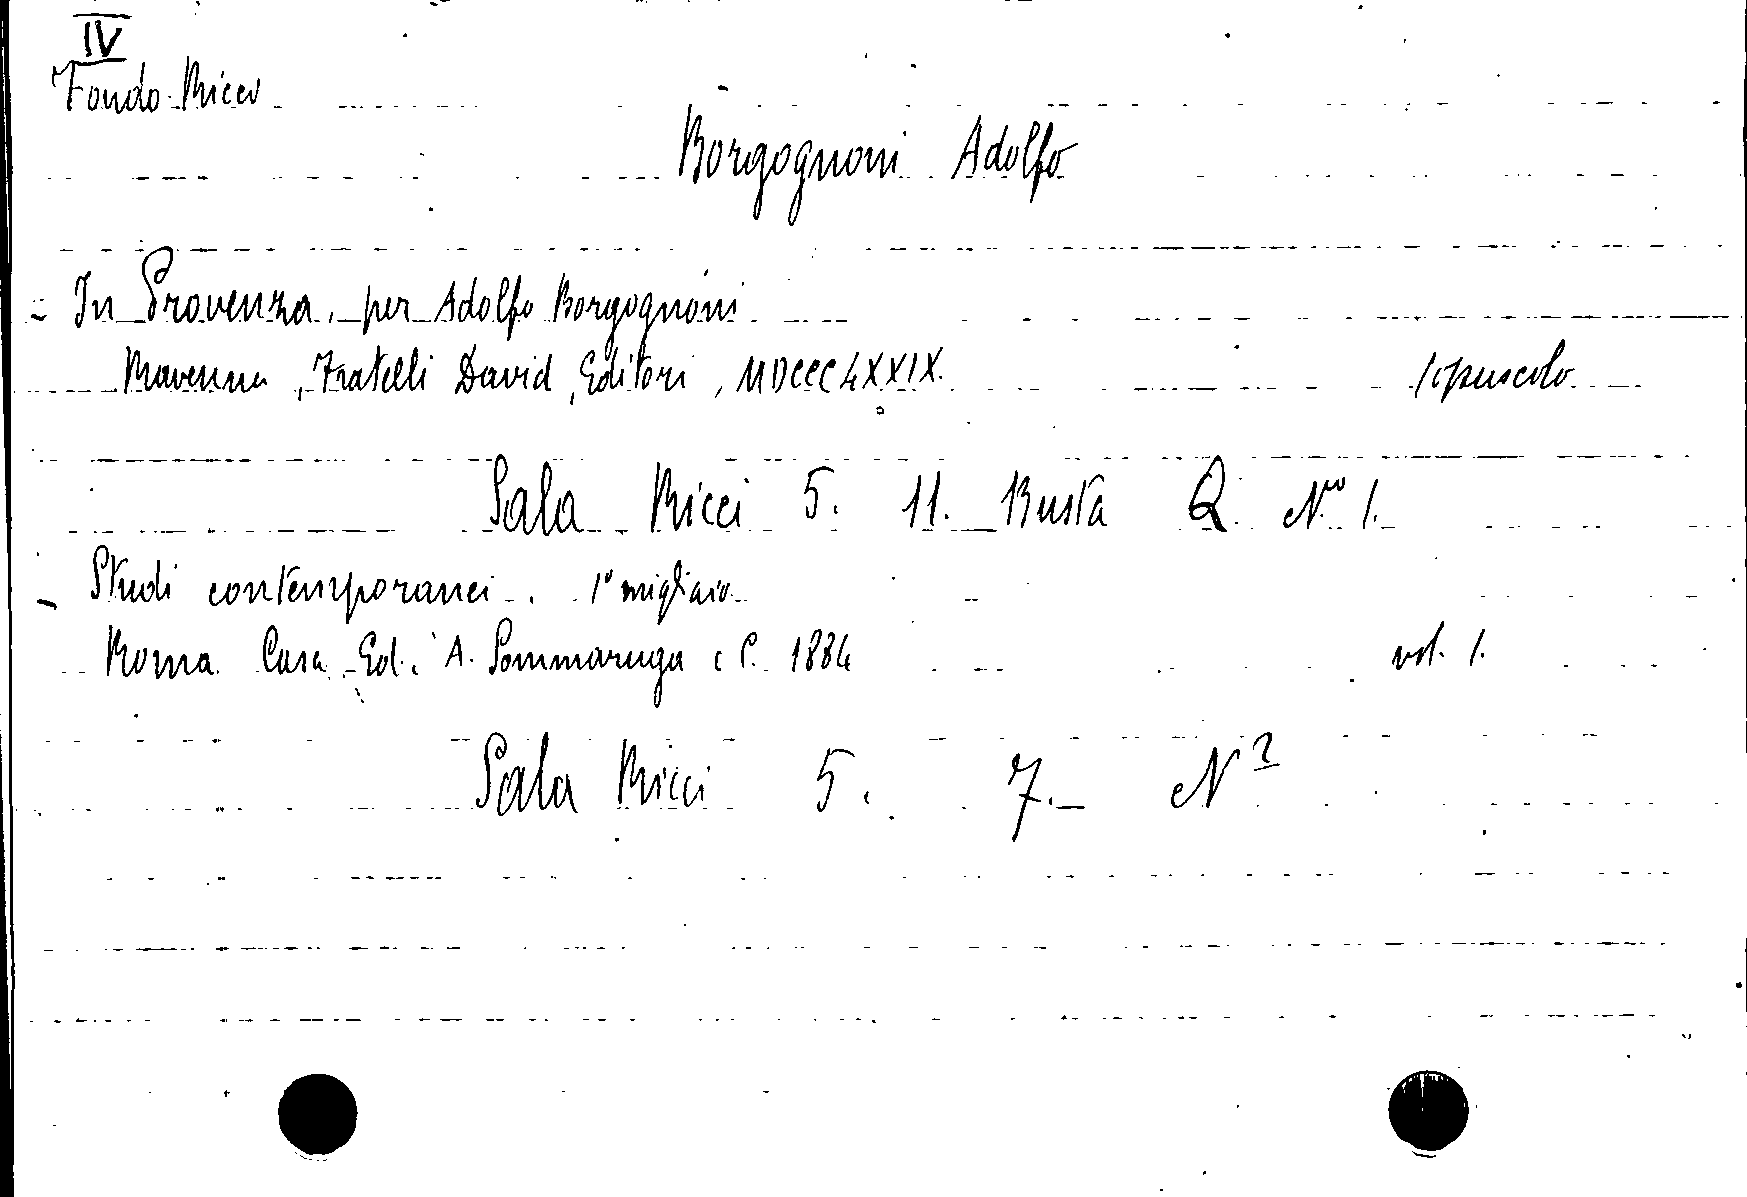 IV
Fondo Ricci
Borgognoni Adolfo
= In Provenza, per Adolfo Borgognoni
Ravenna, Fratelli David, Editori, MDCCCLXXIX. 1 opuscolo
Sala Ricci 5. 11. Busta Q Nº 1.
- Studi contemporanei. 1º migliaio
Roma Casa Ed. A. Sommaruga e C. 1884 vol. 1.
Sala Ricci 5. 7. N 2